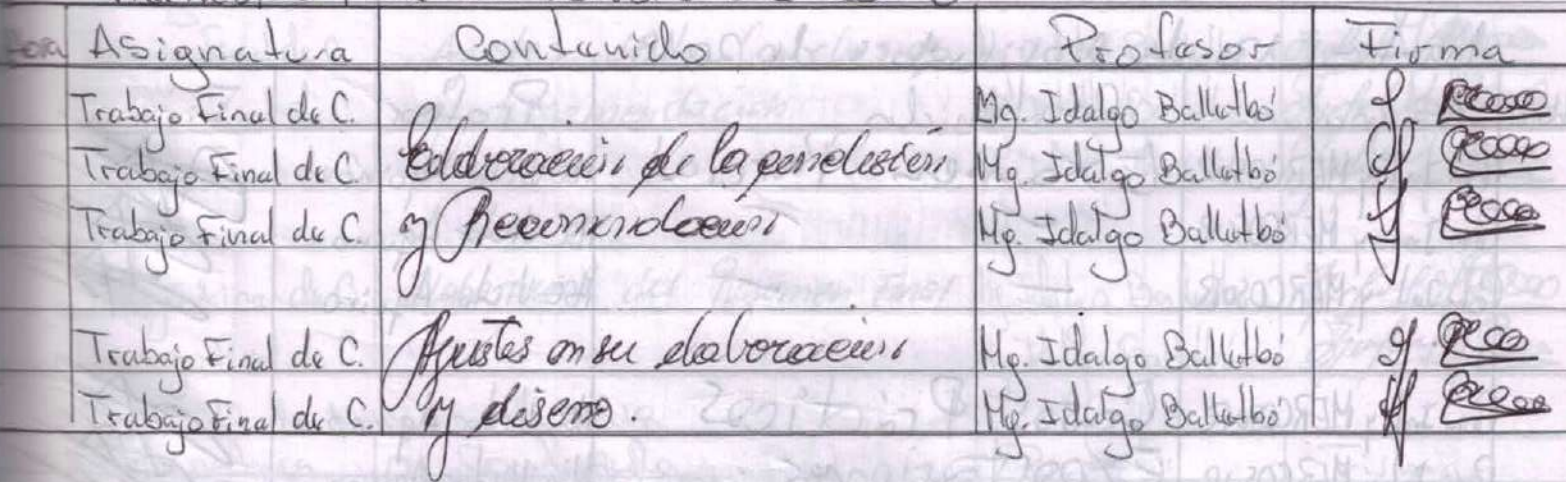 Asignatura Contenido Profesor Firma
Trabajo Final de C. Mg. Idalgo Ballutbó
Trabajo Final de C. Elaboración de la conclusión Mg. Idalgo Ballutbó
Trabajo Final de C. y Recomendación Mg. Idalgo Ballutbó
Trabajo Final de C. Ajustes en su elaboración Mg. Idalgo Ballutbó
Trabajo Final de C. y diseño. Mg. Idalgo Ballutbó